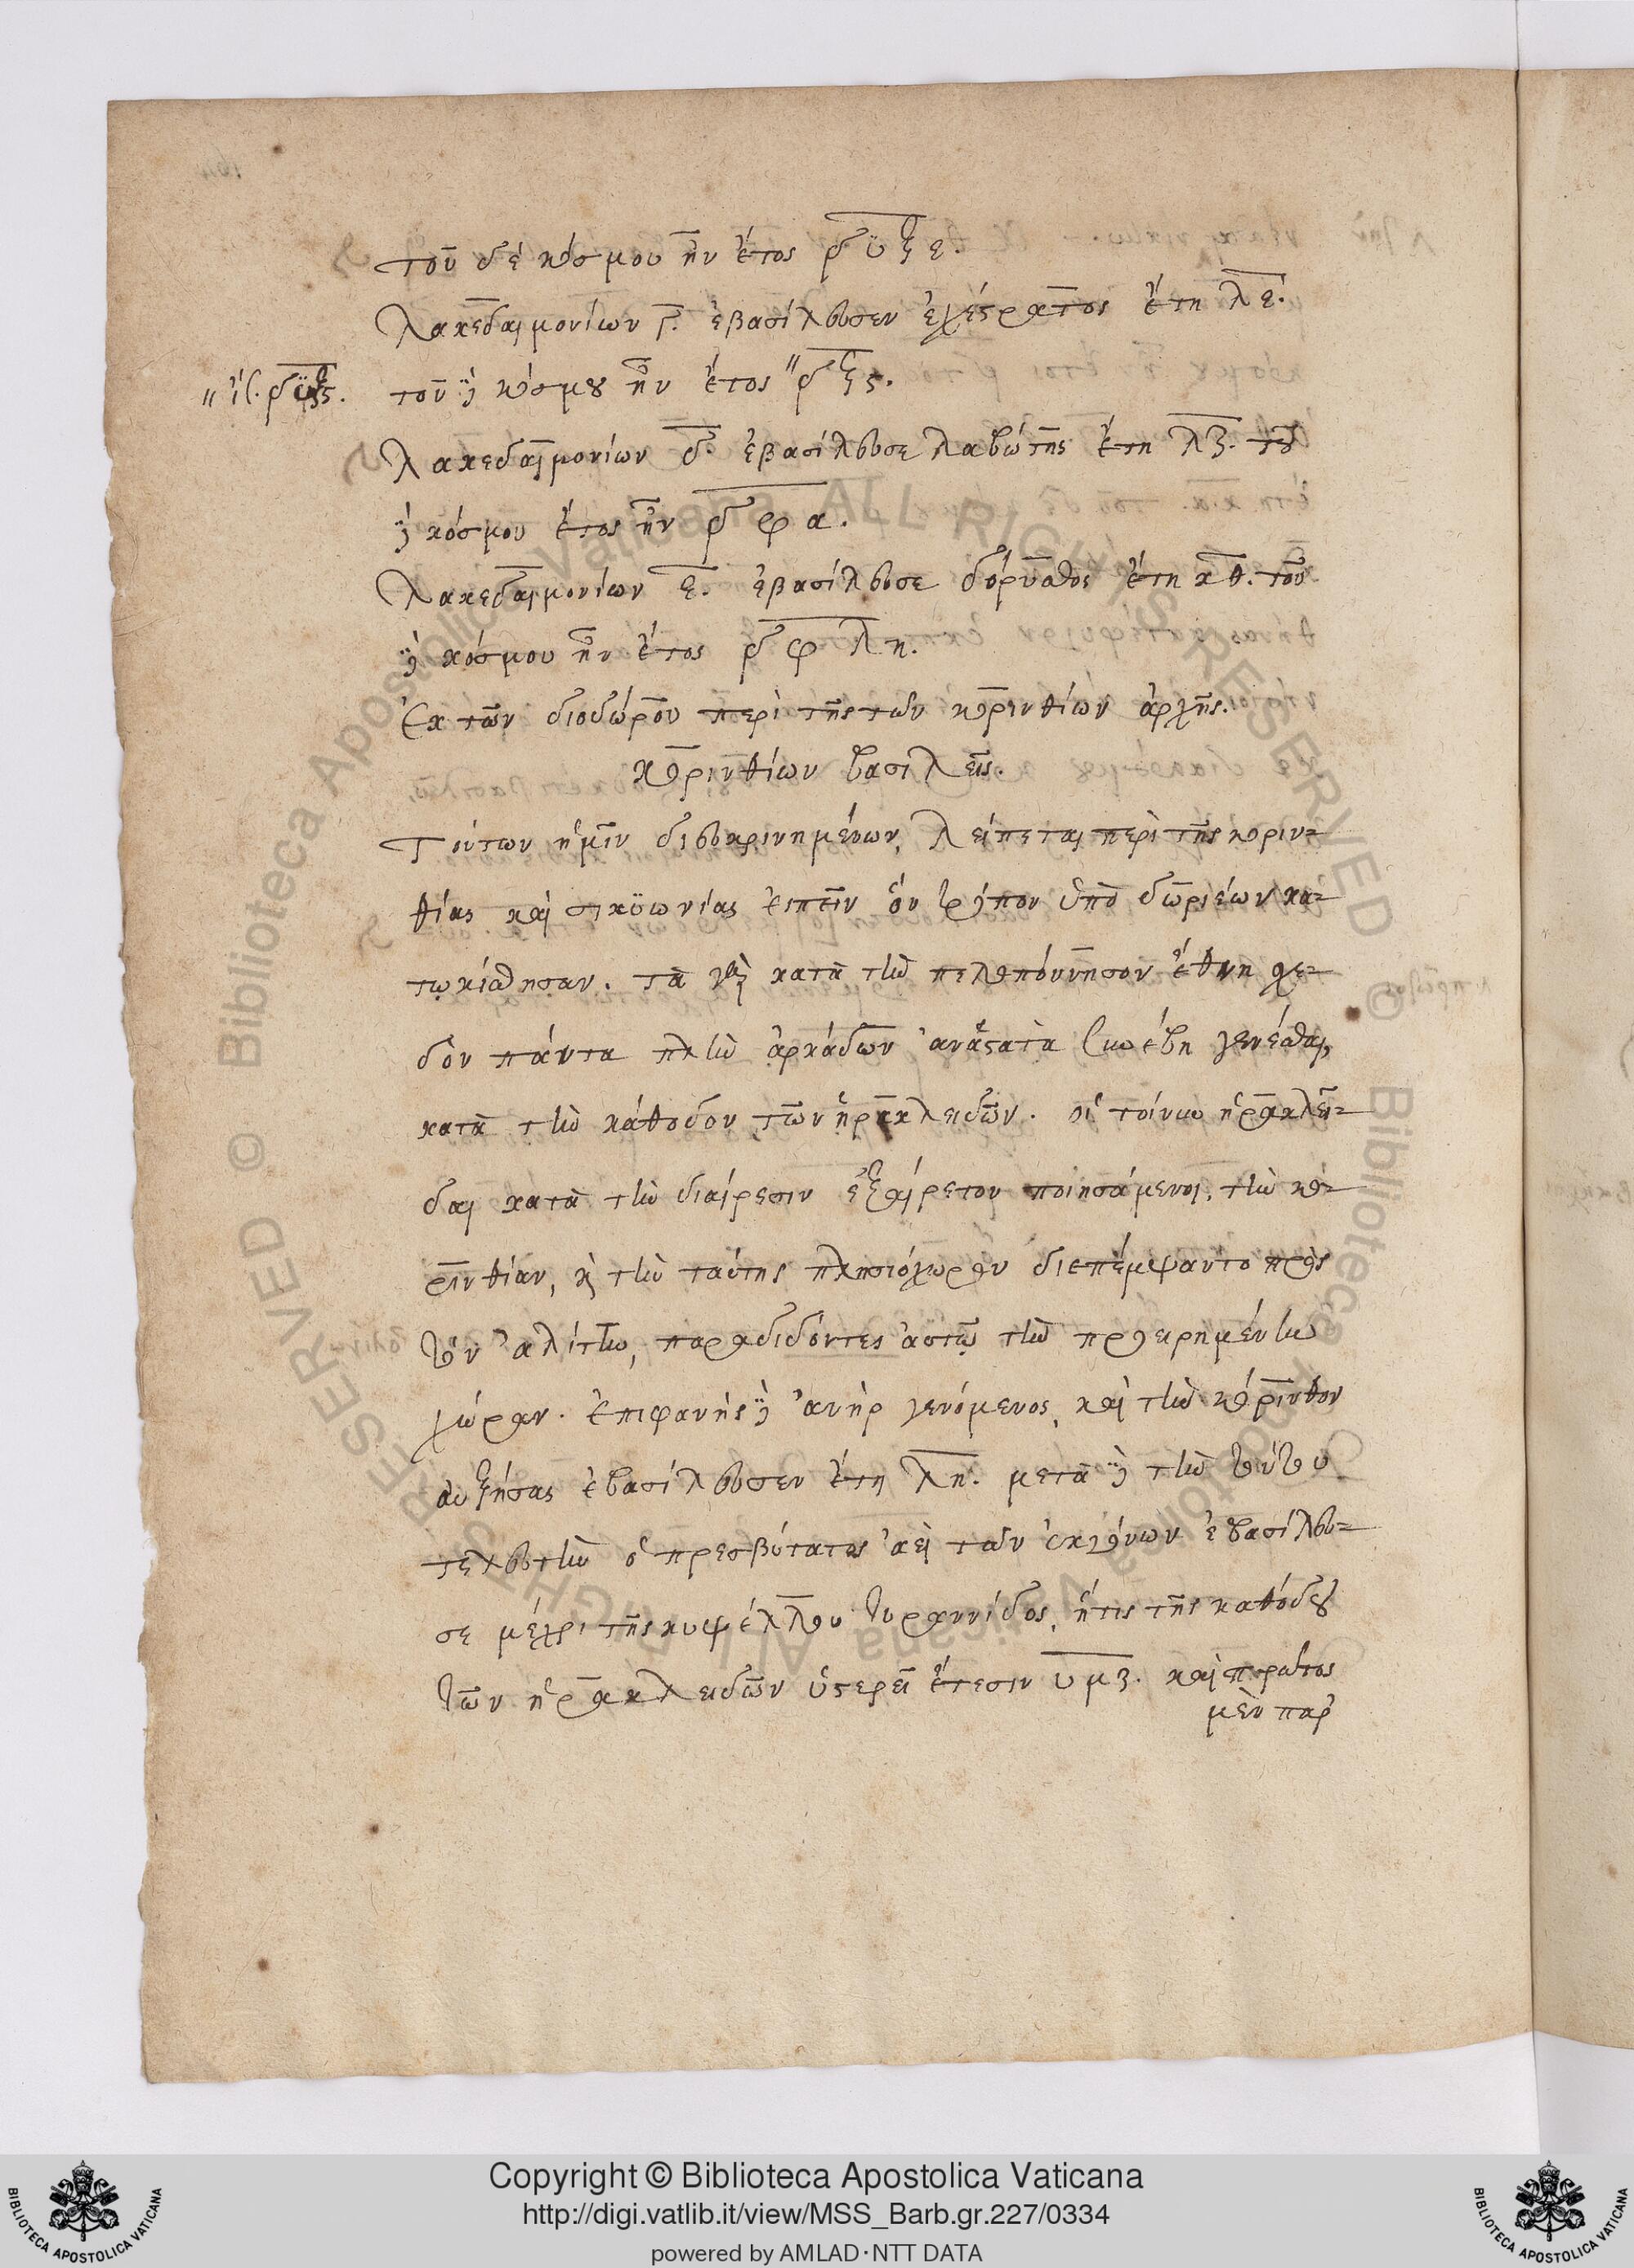 τοῦ δὲ κόσμου ἦν ἔτος ͵δυξε.
Λακεδαιμονίων γ. ἐβασίλευσεν ἐχέστρατος ἔτη λε.
"ἴσ. ͵δυξϛ. τοῦ δὲ κόσμου ἦν ἔτος "͵δξϛ.
Λακεδαιμονίων δ. ἐβασίλευσε λαβώτης ἔτη λζ. τοῦ
δὲ κόσμου ἔτος ἦν ͵δφα.
Λακεδαιμονίων ε. ἐβασίλευσε δόρυσθος ἔτη κθ. τοῦ
δὲ κόσμου ἦν ἔτος ͵δφλη.
Ἐκ τῶν διοδώρου περὶ τῆς τῶν κορινθίων ἀρχῆς.
Κορινθίων βασιλεῖς.
Τούτων ἡμῖν διευκρινημένων, λείπεται περὶ τῆς κοριν=
θίας καὶ σικυωνίας εἰπεῖν ὃν τρόπον ὑπὸ δωριέων κα=
τῳκίσθησαν. τὰ γὰρ κατὰ τὴν πελοπόννησον ἔθνη σχε=
δὸν πάντα πλὴν ἀρκάδων ἀνάστατα συνέβη γενέσθαι,
κατὰ τὴν κάθοδον τῶν ἡρακλειδῶν. οἱ τοίνυν ἡρακλεῖ=
δαι κατὰ τὴν διαίρεσιν ἐξαίρετον ποιησάμενοι, τὴν κο=
ρινθίαν, καὶ τὴν ταύτης πλησιόχωρον διεπέμψαντο πρὸς
τὸν ἀλίτην, παραδιδόντες αὐτῷ τὴν προειρημένην
χώραν. ἐπιφανὴς δὲ ἀνὴρ γενόμενος, καὶ τὴν κόρινθον
αὐξήσας ἐβασίλευσεν ἔτη λη. μετὰ δὲ τὴν τούτου
τελευτὴν ὁ πρεσβύτατος ἀεὶ τῶν ἐκγόνων ἐβασίλευ=
σε μέχρι τῆς κυψέλλου τυραννίδος, ἥτις τῆς καθόδου
τῶν ἡρακλειδῶν ὑστερεῖ ἔτεσιν υμζ. καὶ πρῶτος
μὲν παρ'
Copyright © Biblioteca Apostolica Vaticana
http://digi.vatlib.it/view/MSS_Barb.gr.227/0334
powered by AMLAD·NTT DATA